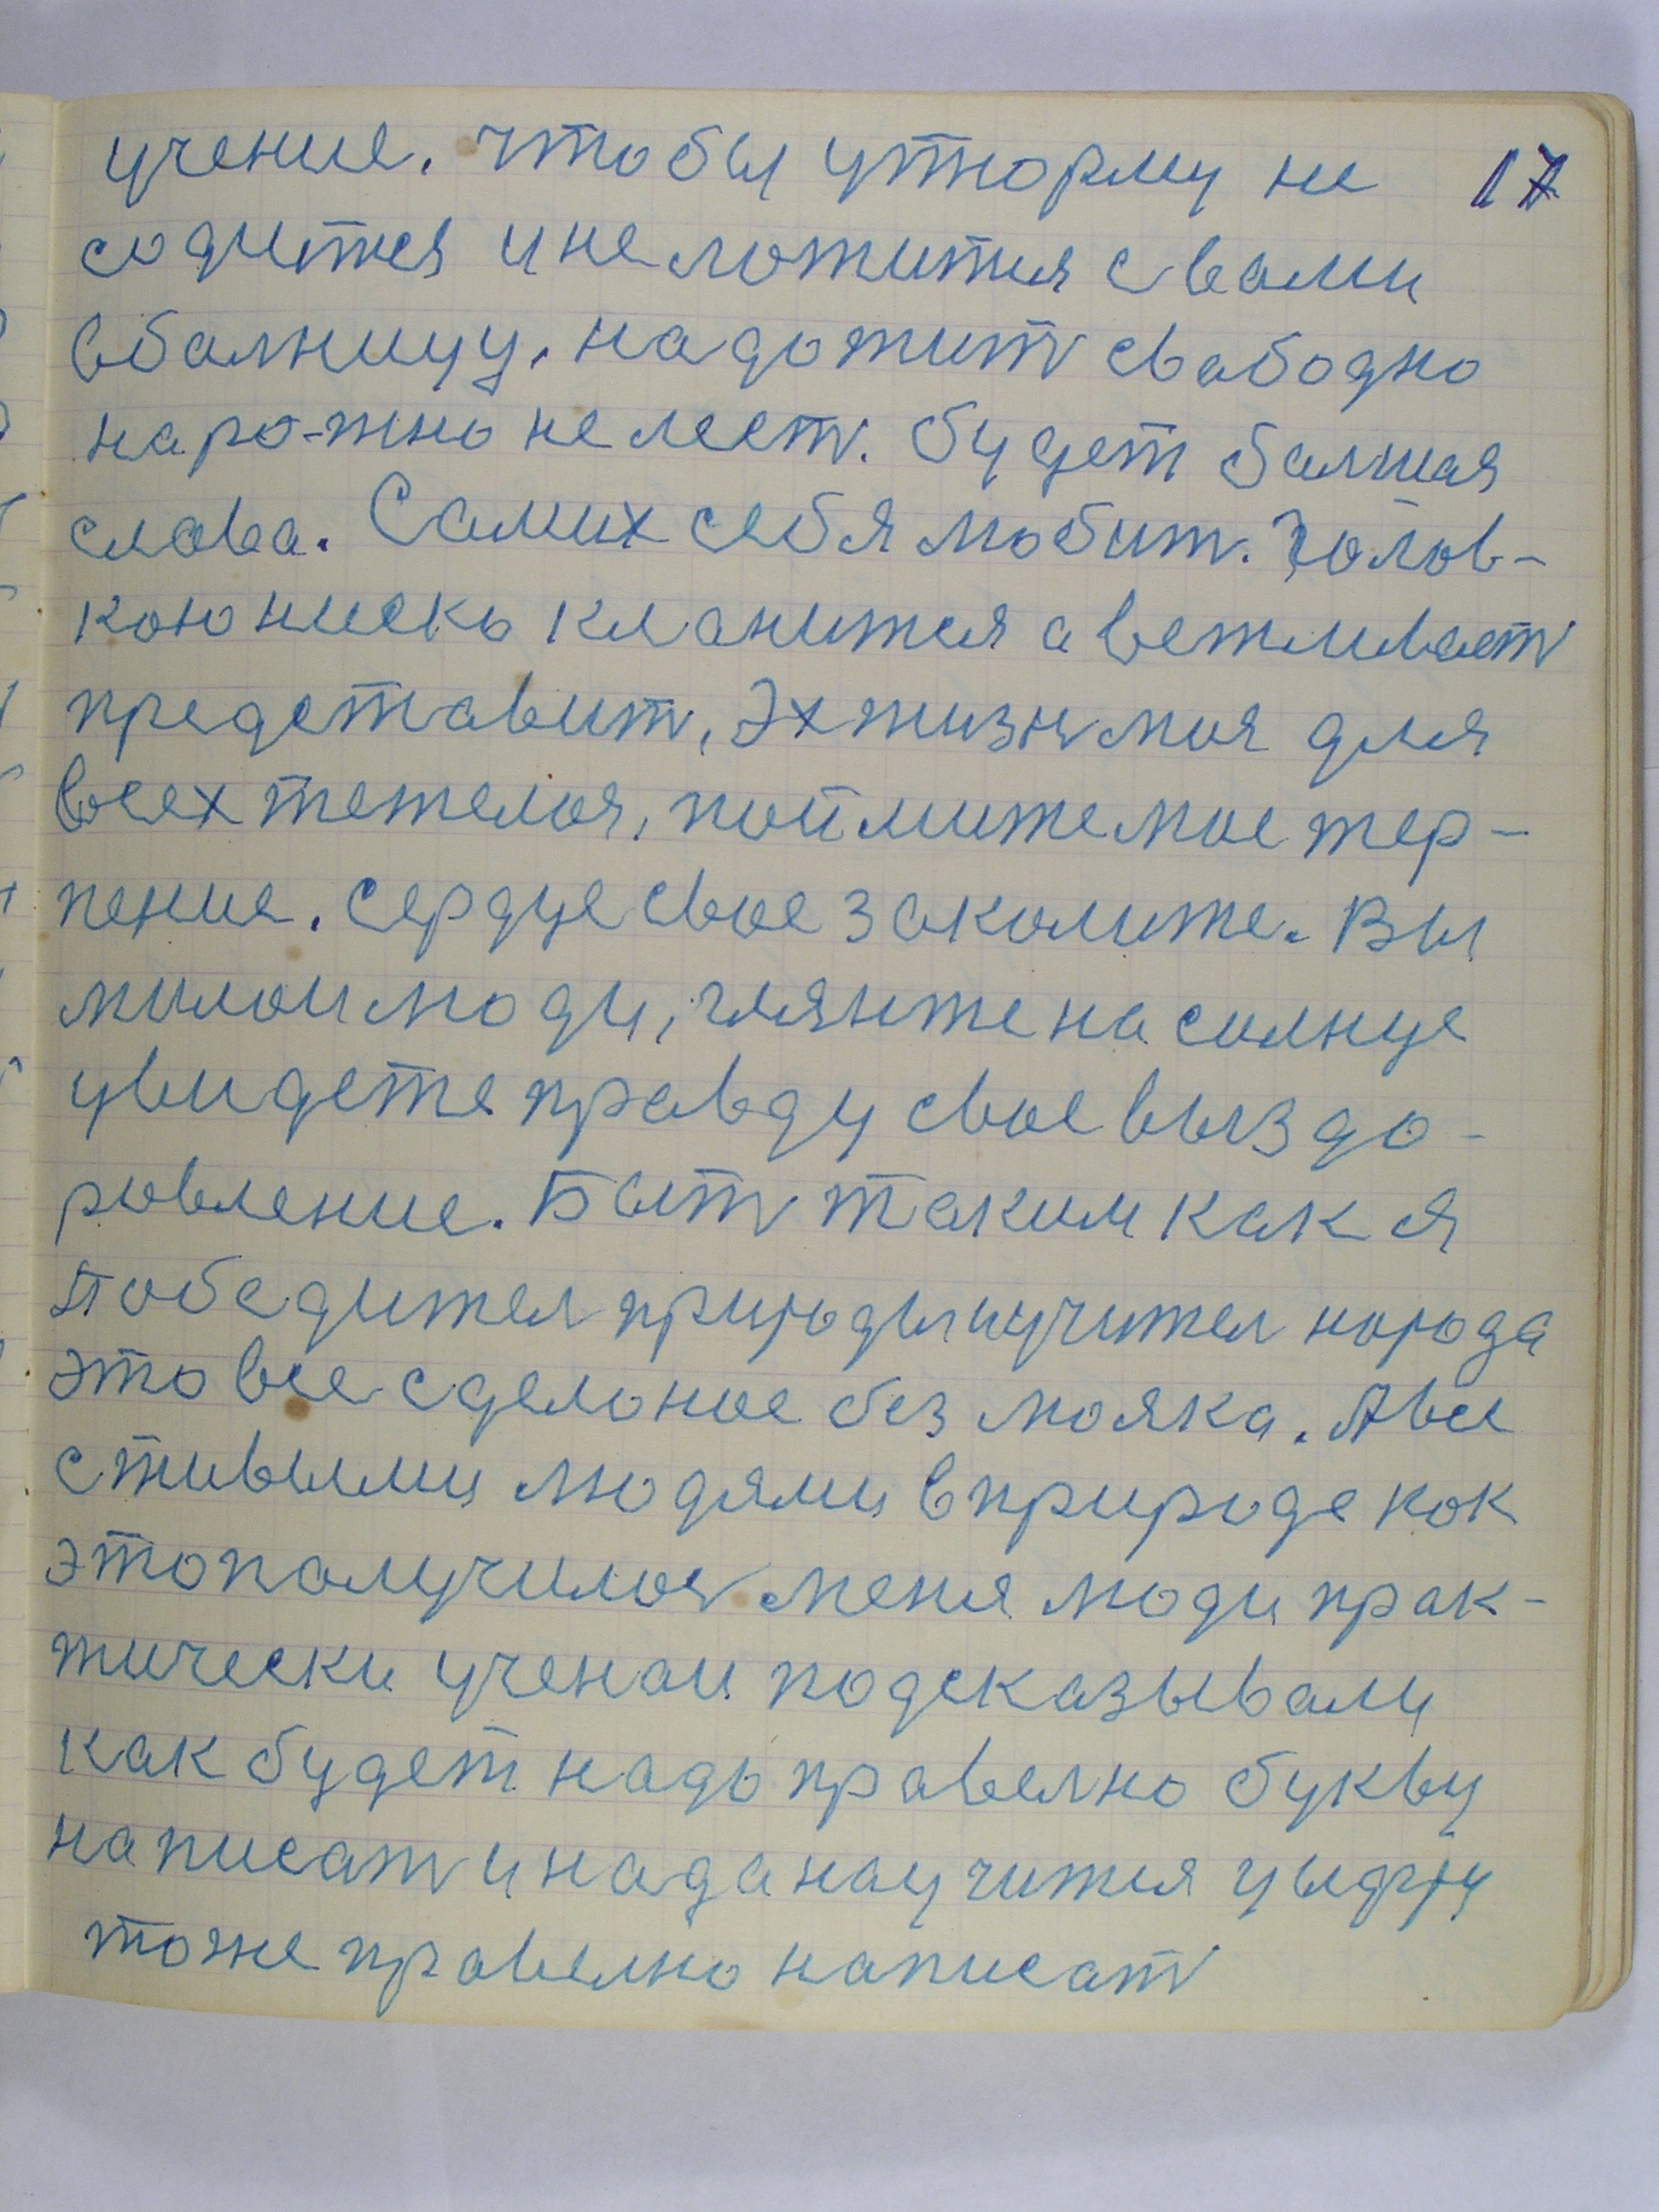 учение. чтобы утюрму не 17
содится и не ложится с вами
в балницу. надо жит свабодно
на рожно не лест. будет балшая
слава. Самих себя любит. Голов-
кою ниско кланится а вежливаст
представит, Эх жизн моя для
всех тежелоя, поймите мое тер-
пение. сердце свое закалите. Вы
милои люди, гляньте на солнце
увидете правду свое выздо-
ровление. Быт таким как я
Победител природы и учител народа
это все сделоное без мояка. А все
с живыми людями в природе как
это получилос меня люди прак-
тически ученаи подсказывали
как будет надо правелно букву
написат и нада научится цыфру
тоже правелно написат